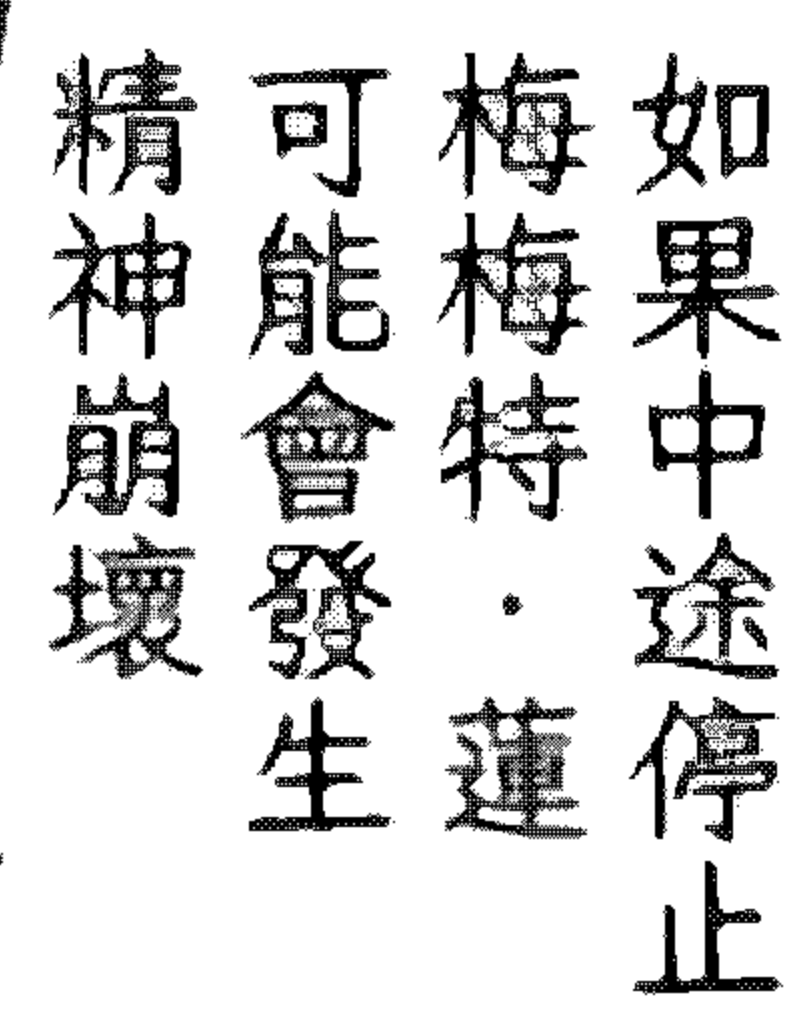 如果中途停止
梅梅特·蓮
可能會發生
精神崩壞